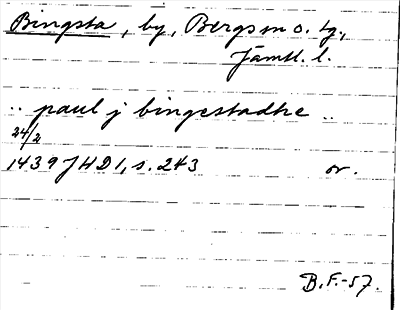 Bingsta, by, Bergs sn o. tg,
Jämtl. l.
.. paul j bingestadhe ..
24/2
1439 JHD1, s. 243 or.
B.F.-57.